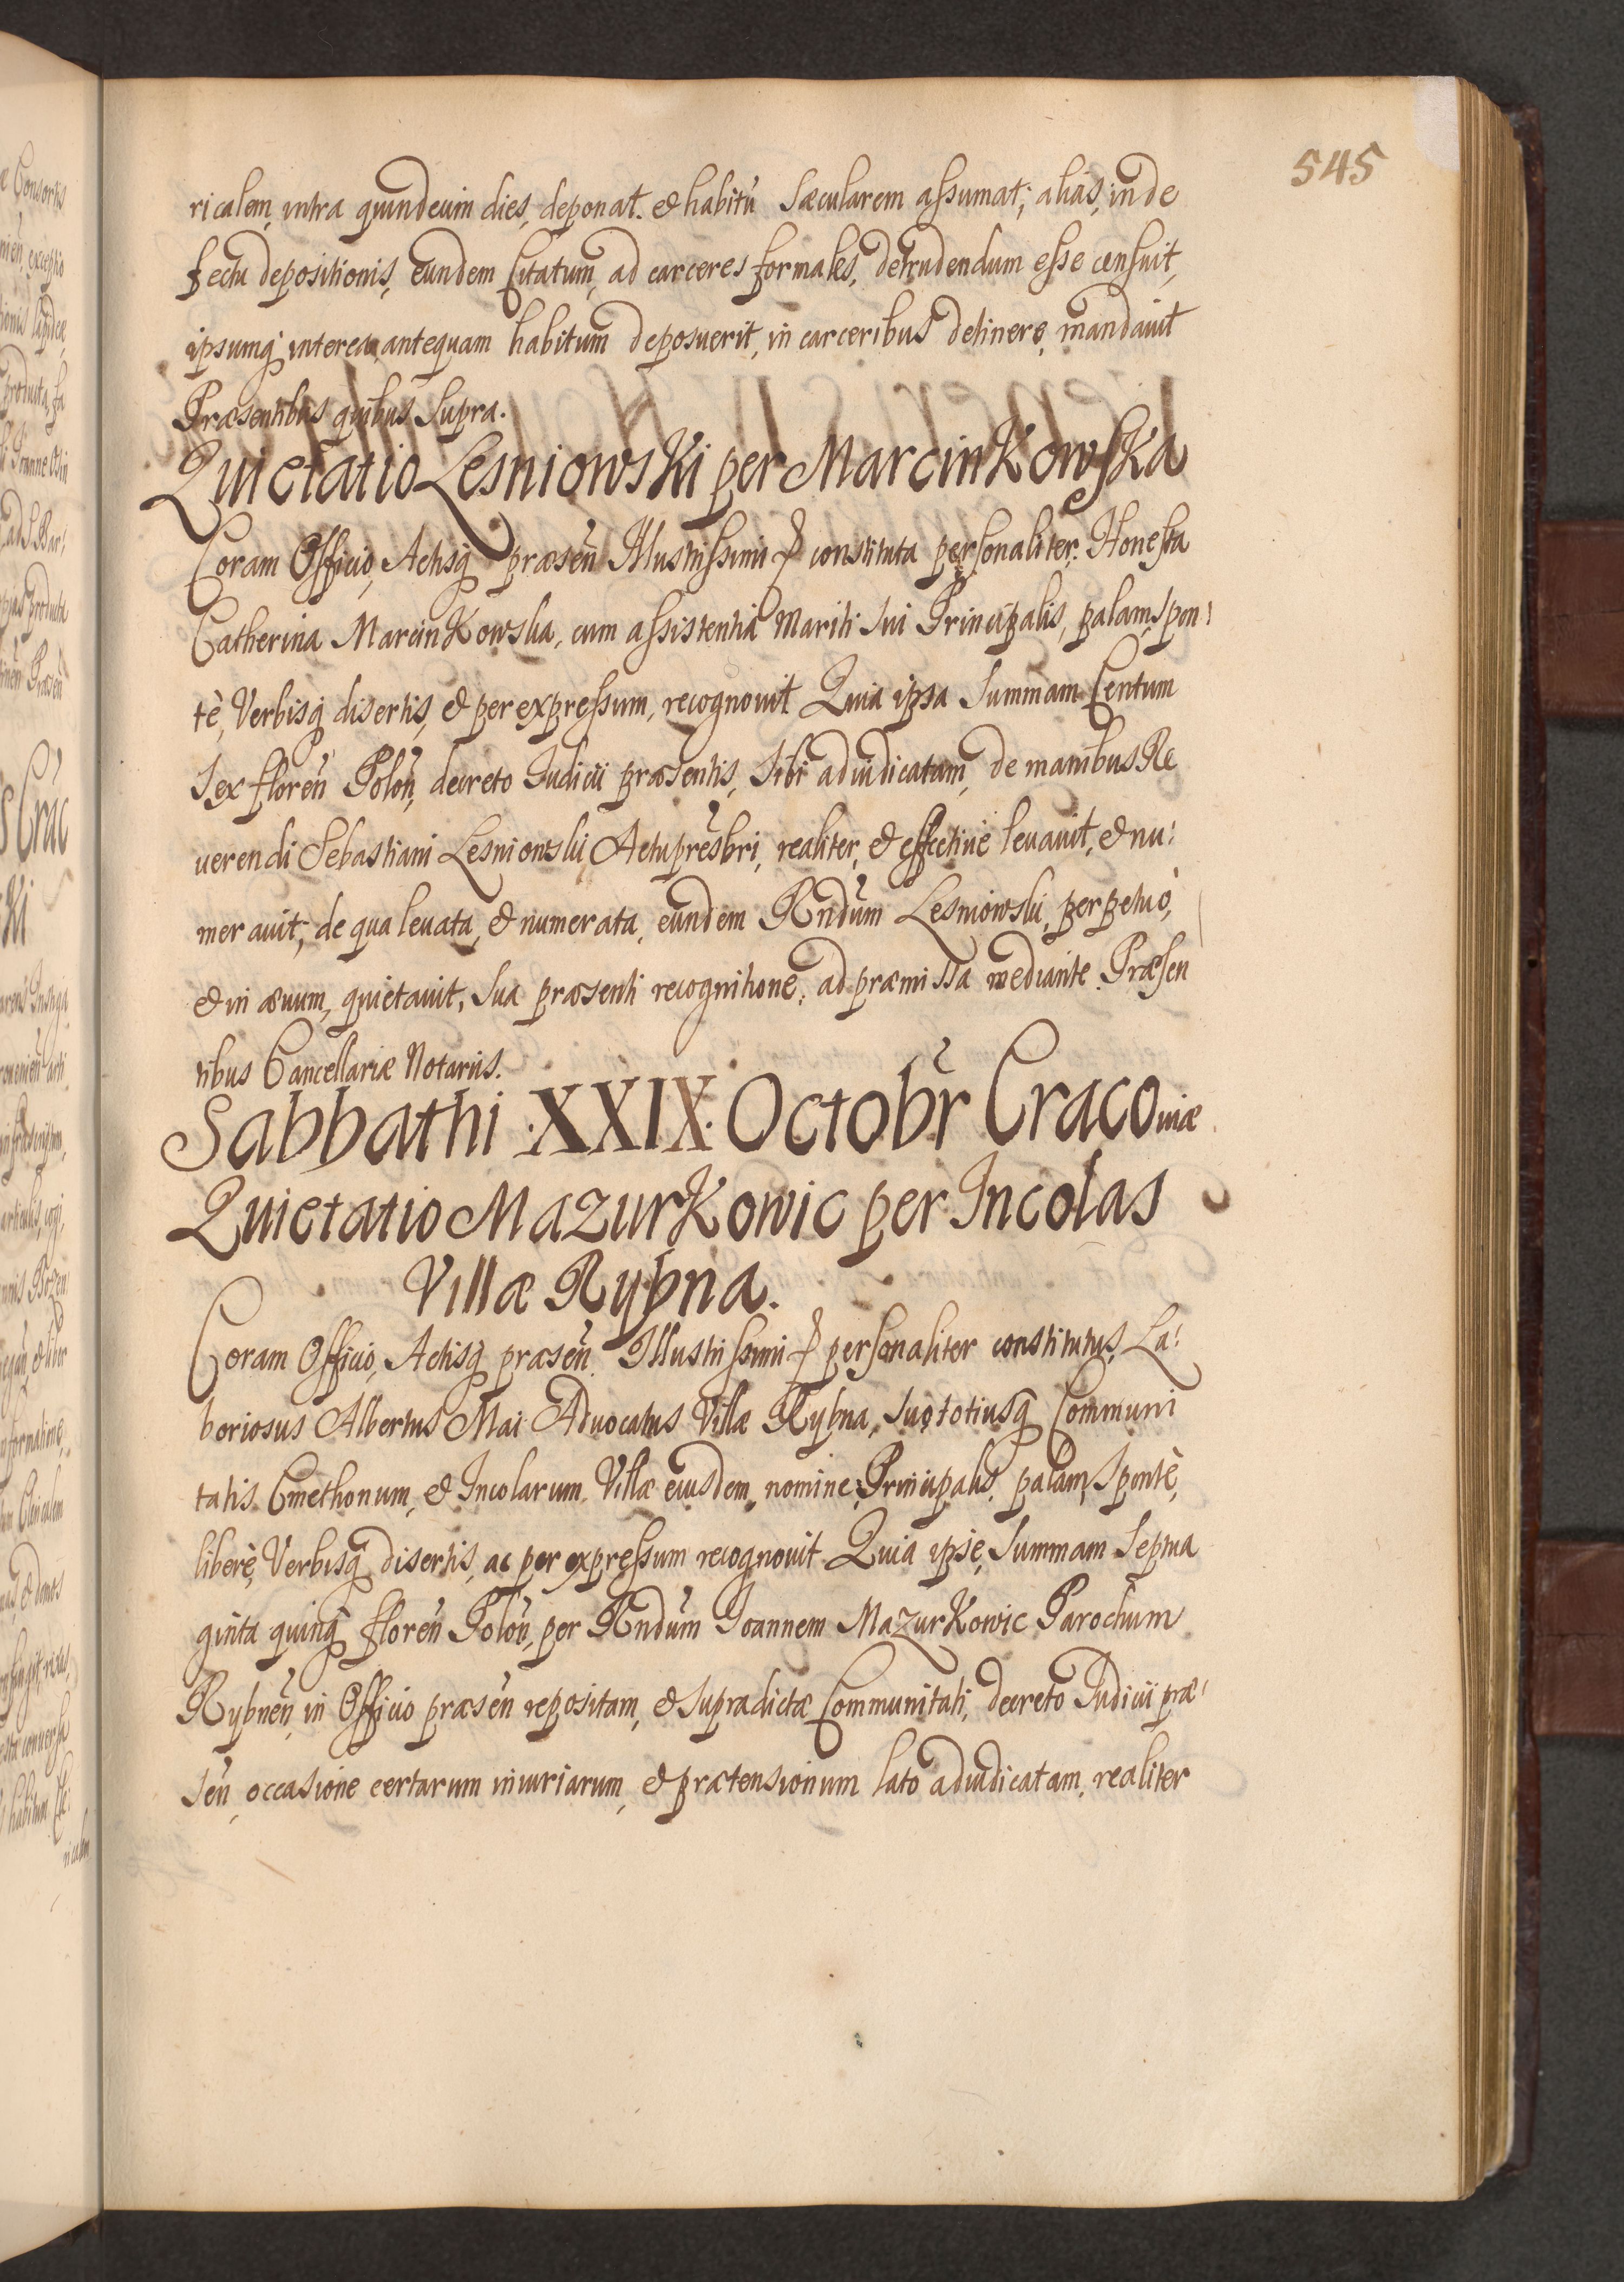 545
ricalem, intra quindecim dies, deponat. et habitũ Sæcularem assumat; alias, in de
fectu depositionis, eundem Citatum, ad carceres formales, detrudendum esse censuit,
ipsumq interea, antequam habitum deposuerit, in carceribus detinere, mandauit
Præsentibus quibus Supra.
Quietatio Lesniowski per MarcinKowsKa
Coram Officio, Actisq præsẽn Illustrissimi constituta personaliter. Honesta
Catherina MarcinKowska, cum assistentia Mariti Sui Principalis, palam, Spon:
tè, Verbisq disertis, et per expressum, recognouit Quia ipsa Summam Centum
Sex florẽn Polõn, decreto Judicii præsentis, Sibi adiudicatam, de manibus Re
uerendi Sebastiani Lesniowski, Actu præsbri, realiter, et effectiue leuauit, et nu:
merauit; de qua leuata, et numerata, eundem Rndum Lesniowski, perpetuò,
et in æuum, quietauit, Sua præsenti recognitione, ad præmissa mediante. Præsen
tibus Cancellariæ Notariis.
Sabbathi ·XXIX· Octobr Cracouiæ
Quietatio MazurKowic per Incolas
Villæ Rybna.
Coram Officio, Actisq præsẽn. Illustrissimi personaliter constitutus, La:
boriosus Albertus Mai Aduocatus Villæ Rybna, Suo, totiusq Communi
tatis Cmethonum, et Incolarum Villæ eiusdem, nomine, Principalis, palam, Spontè,
liberè, Verbisq disertis, ac per expressum recognouit Quia ipse, Summam Septua
ginta quinq florẽn Polõn, per Rndum Joannem MazurKowic Parochum
Rybnẽn, in Officio præsẽn repositam, et Supradictæ Communitati, decreto Judicii præ:
sẽn, occasione certarum iniuriarum, et prætensionum lato adiudicatam, realiter